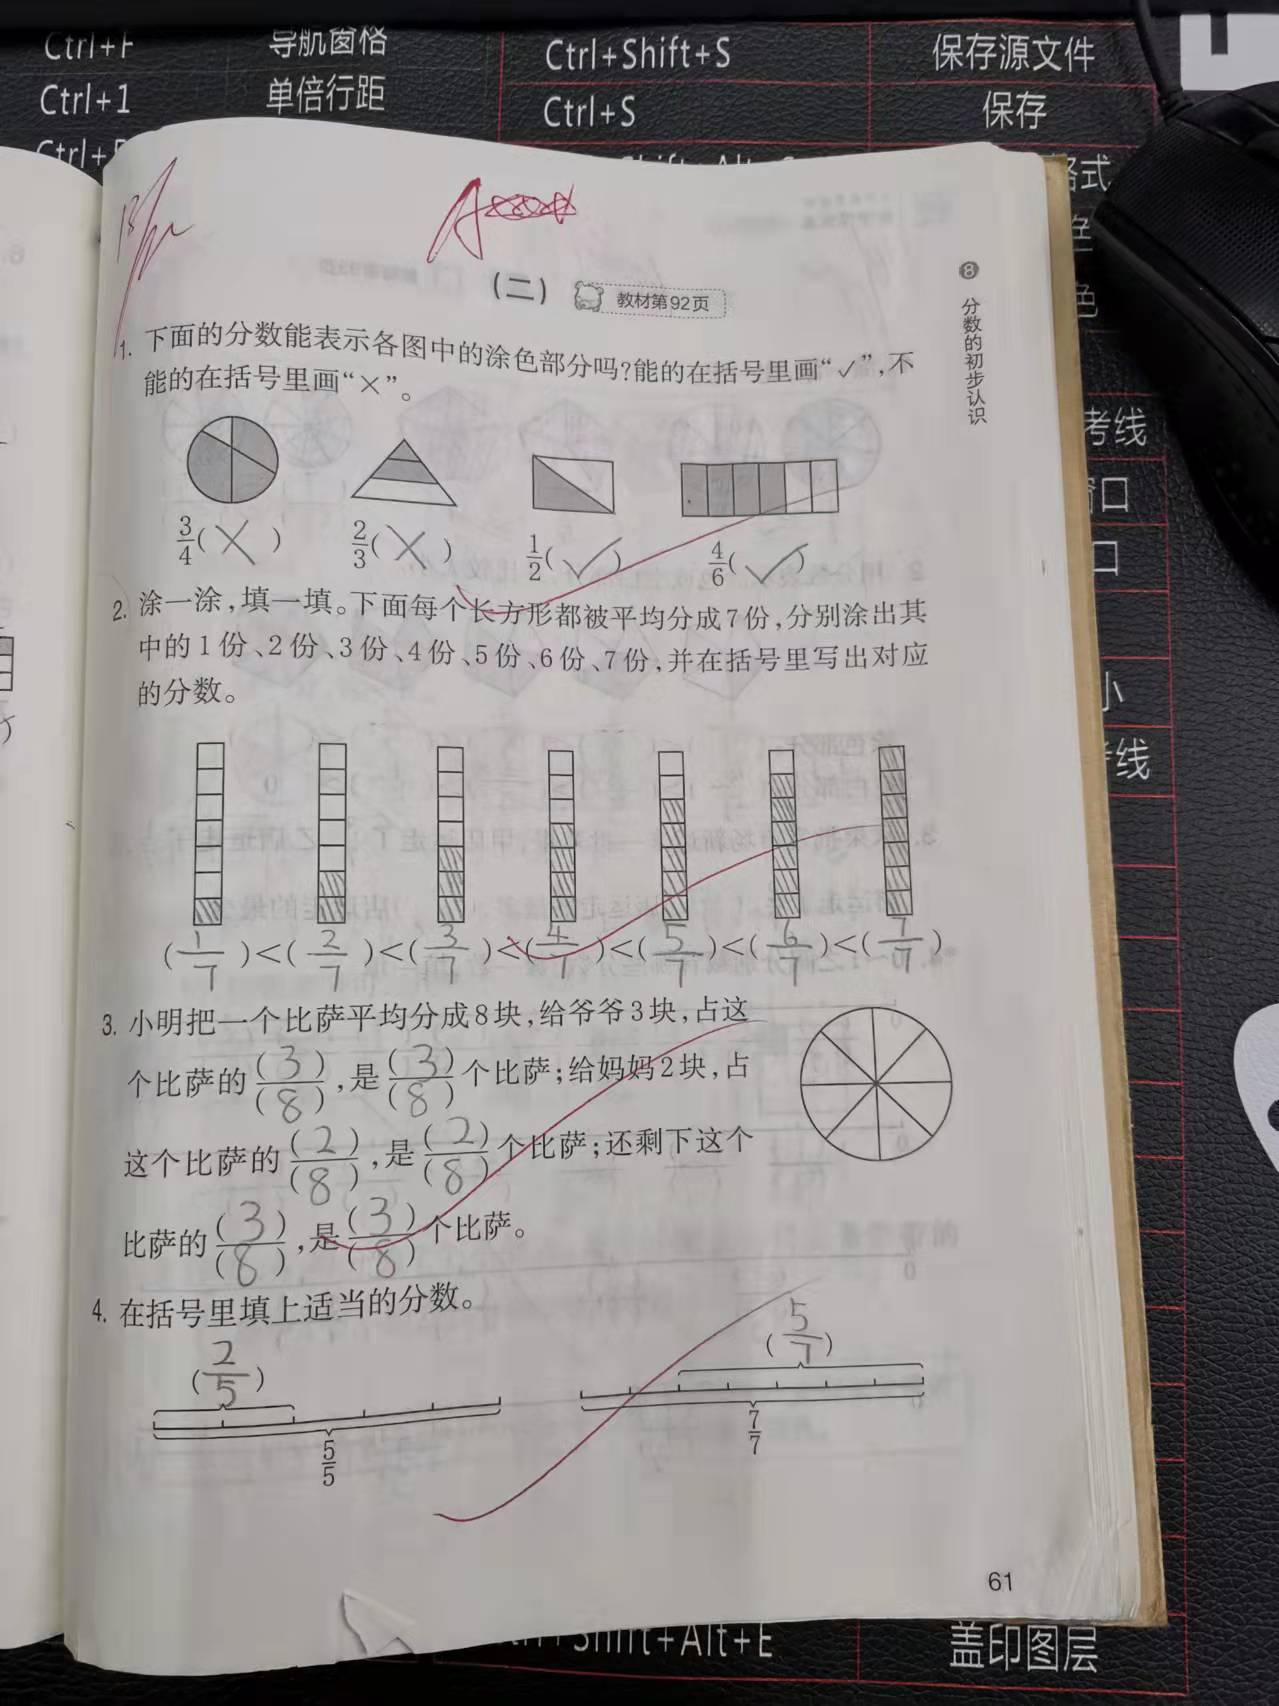 Ctrl+F 导航窗格 Ctrl+Shift+S 保存源文件
Ctrl+1 单倍行距 Ctrl+S 保存
格式
色
考线
窗口
口
小
线
A
(二) 教材第92页
8 分数的初步认识
1. 下面的分数能表示各图中的涂色部分吗?能的在括号里画“✓”,不
能的在括号里画“×”。
3/4(×) 2/3(×) 1/2(✓) 4/6(✓)
2. 涂一涂,填一填。下面每个长方形都被平均分成7份,分别涂出其
中的1份、2份、3份、4份、5份、6份、7份,并在括号里写出对应
的分数。
(1/7)<(2/7)<(3/7)<(4/7)<(5/7)<(6/7)<(7/7)
3. 小明把一个比萨平均分成8块,给爷爷3块,占这
个比萨的(3)/(8),是(3)/(8)个比萨;给妈妈2块,占
这个比萨的(2)/(8),是(2)/(8)个比萨;还剩下这个
比萨的(3)/(8),是(3)/(8)个比萨。
4. 在括号里填上适当的分数。
(2/5) (5/7)
5/5 7/7
61
Shift+Alt+E 盖印图层